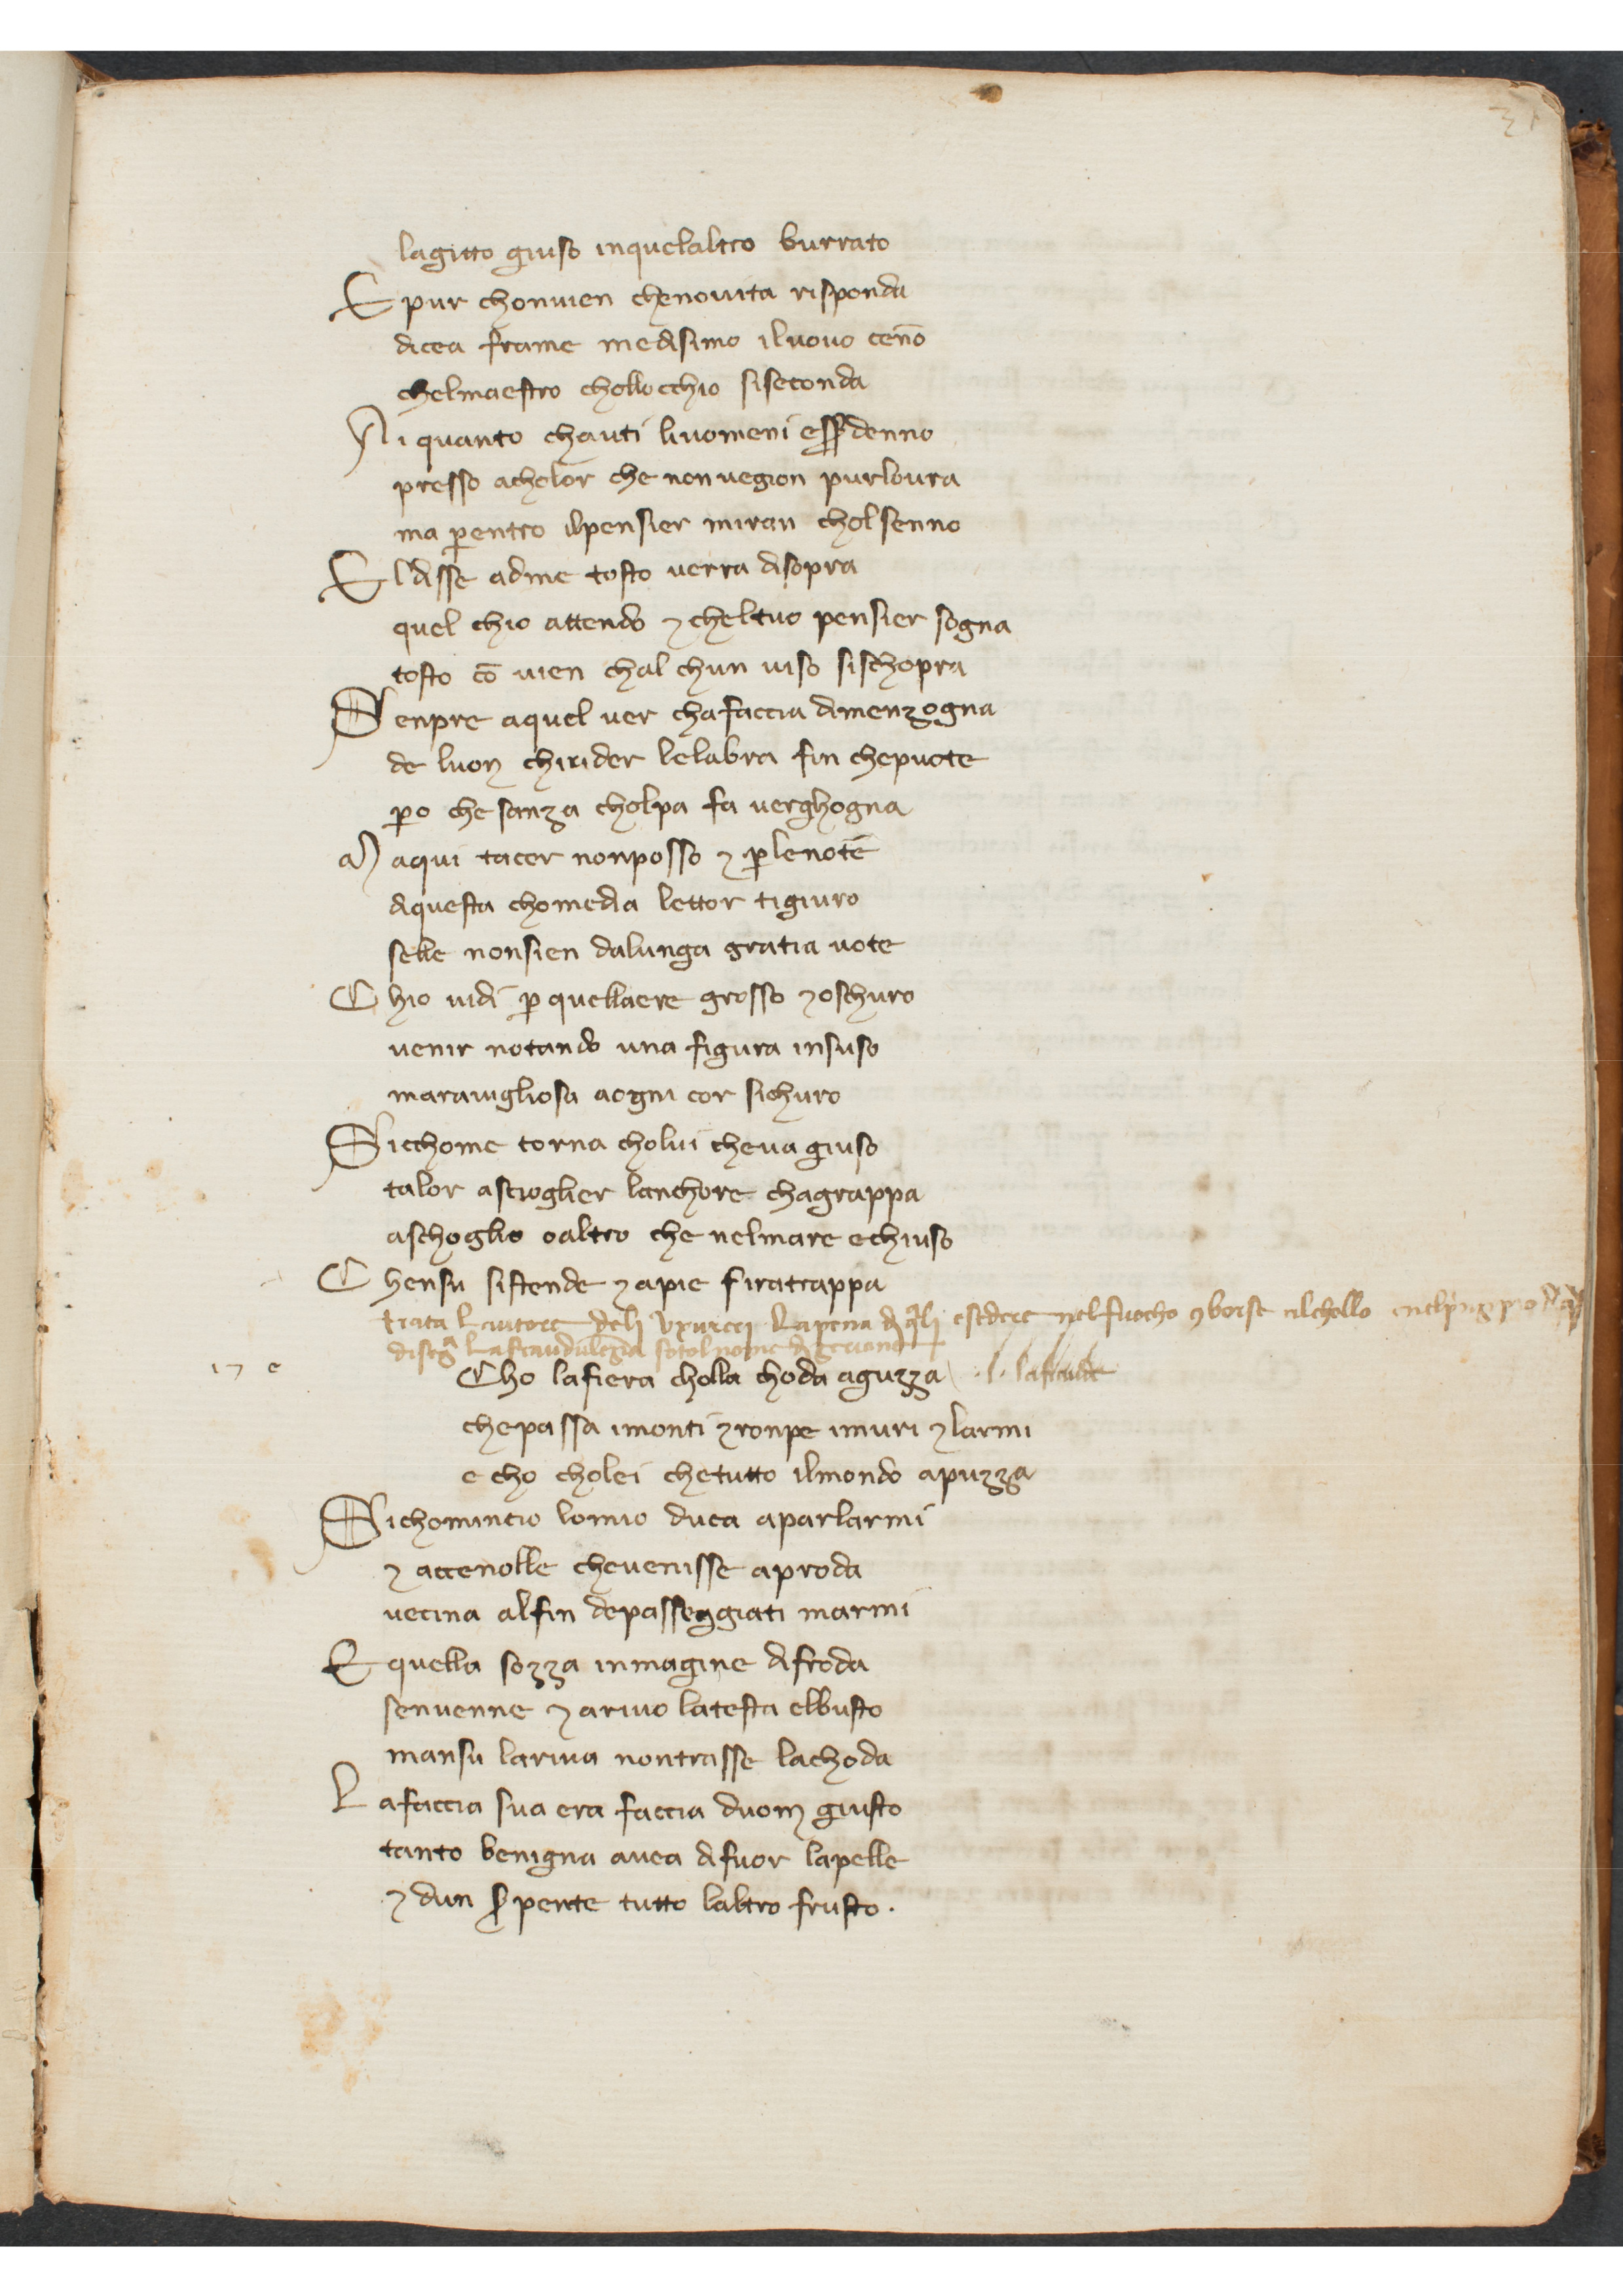 31
lagitto giuso inquelaltro burrato
E pur chonvien chenovita risponda
dicea frame medisimo ilnovo ceño
chelmaestro chollocchio siseconda
Ai quanto chauti liuomeni esser denno
presso acholor che nonvegion purloura
ma ꝑentro ilpensier miran cholsenno
El disse adme tosto verra disopra
quel chio attendo ⁊ cheltuo pensier sogna
tosto cō vien chal chun viso sischopra
Senpre aquel ver chafaccia dimenzogna
de luom chiuder lelabra fin chepuote
ꝑo che sanza cholpa fa verghogna
Maqui tacer nonposso ⁊ ꝑlenote
diquesta chomedia lettor tigiuro
selle nonsien dalunga gratia vote
Chio vidi ꝑ quellaere grosso ⁊ oschuro
venir notando una figura insuso
maravigliosa aogni cor sichuro
Sicchome torna cholui cheva giuso
talor ascioglier lanchore chagrappa
aschoglio oaltro che nelmare echiuso
Chensu sistende ⁊ apie siratrappa
trata Lautore deli Uxureri Lapena di q̄li esedere nelfuocho ꝯ borse alchollo
17 e
Echo lafiera cholla choda aguzza .l. lafraude
chepassa imonti ⁊ ronpe imuri ⁊ larmi
e cho cholei chetutto ilmondo apuzza
Sichomincio lomio duca aparlarmi
⁊ accenolle chevenisse aproda
vecina alfin depasseggiati marmi
E quella sozza inmagine difroda
senvenne ⁊ arivo latesta elbusto
mansu lariva nontrasse lachoda
Lafaccia sua era faccia duom giusto
tanto benigna avea difuor lapelle
⁊ dun serpente tutto laltro frusto .